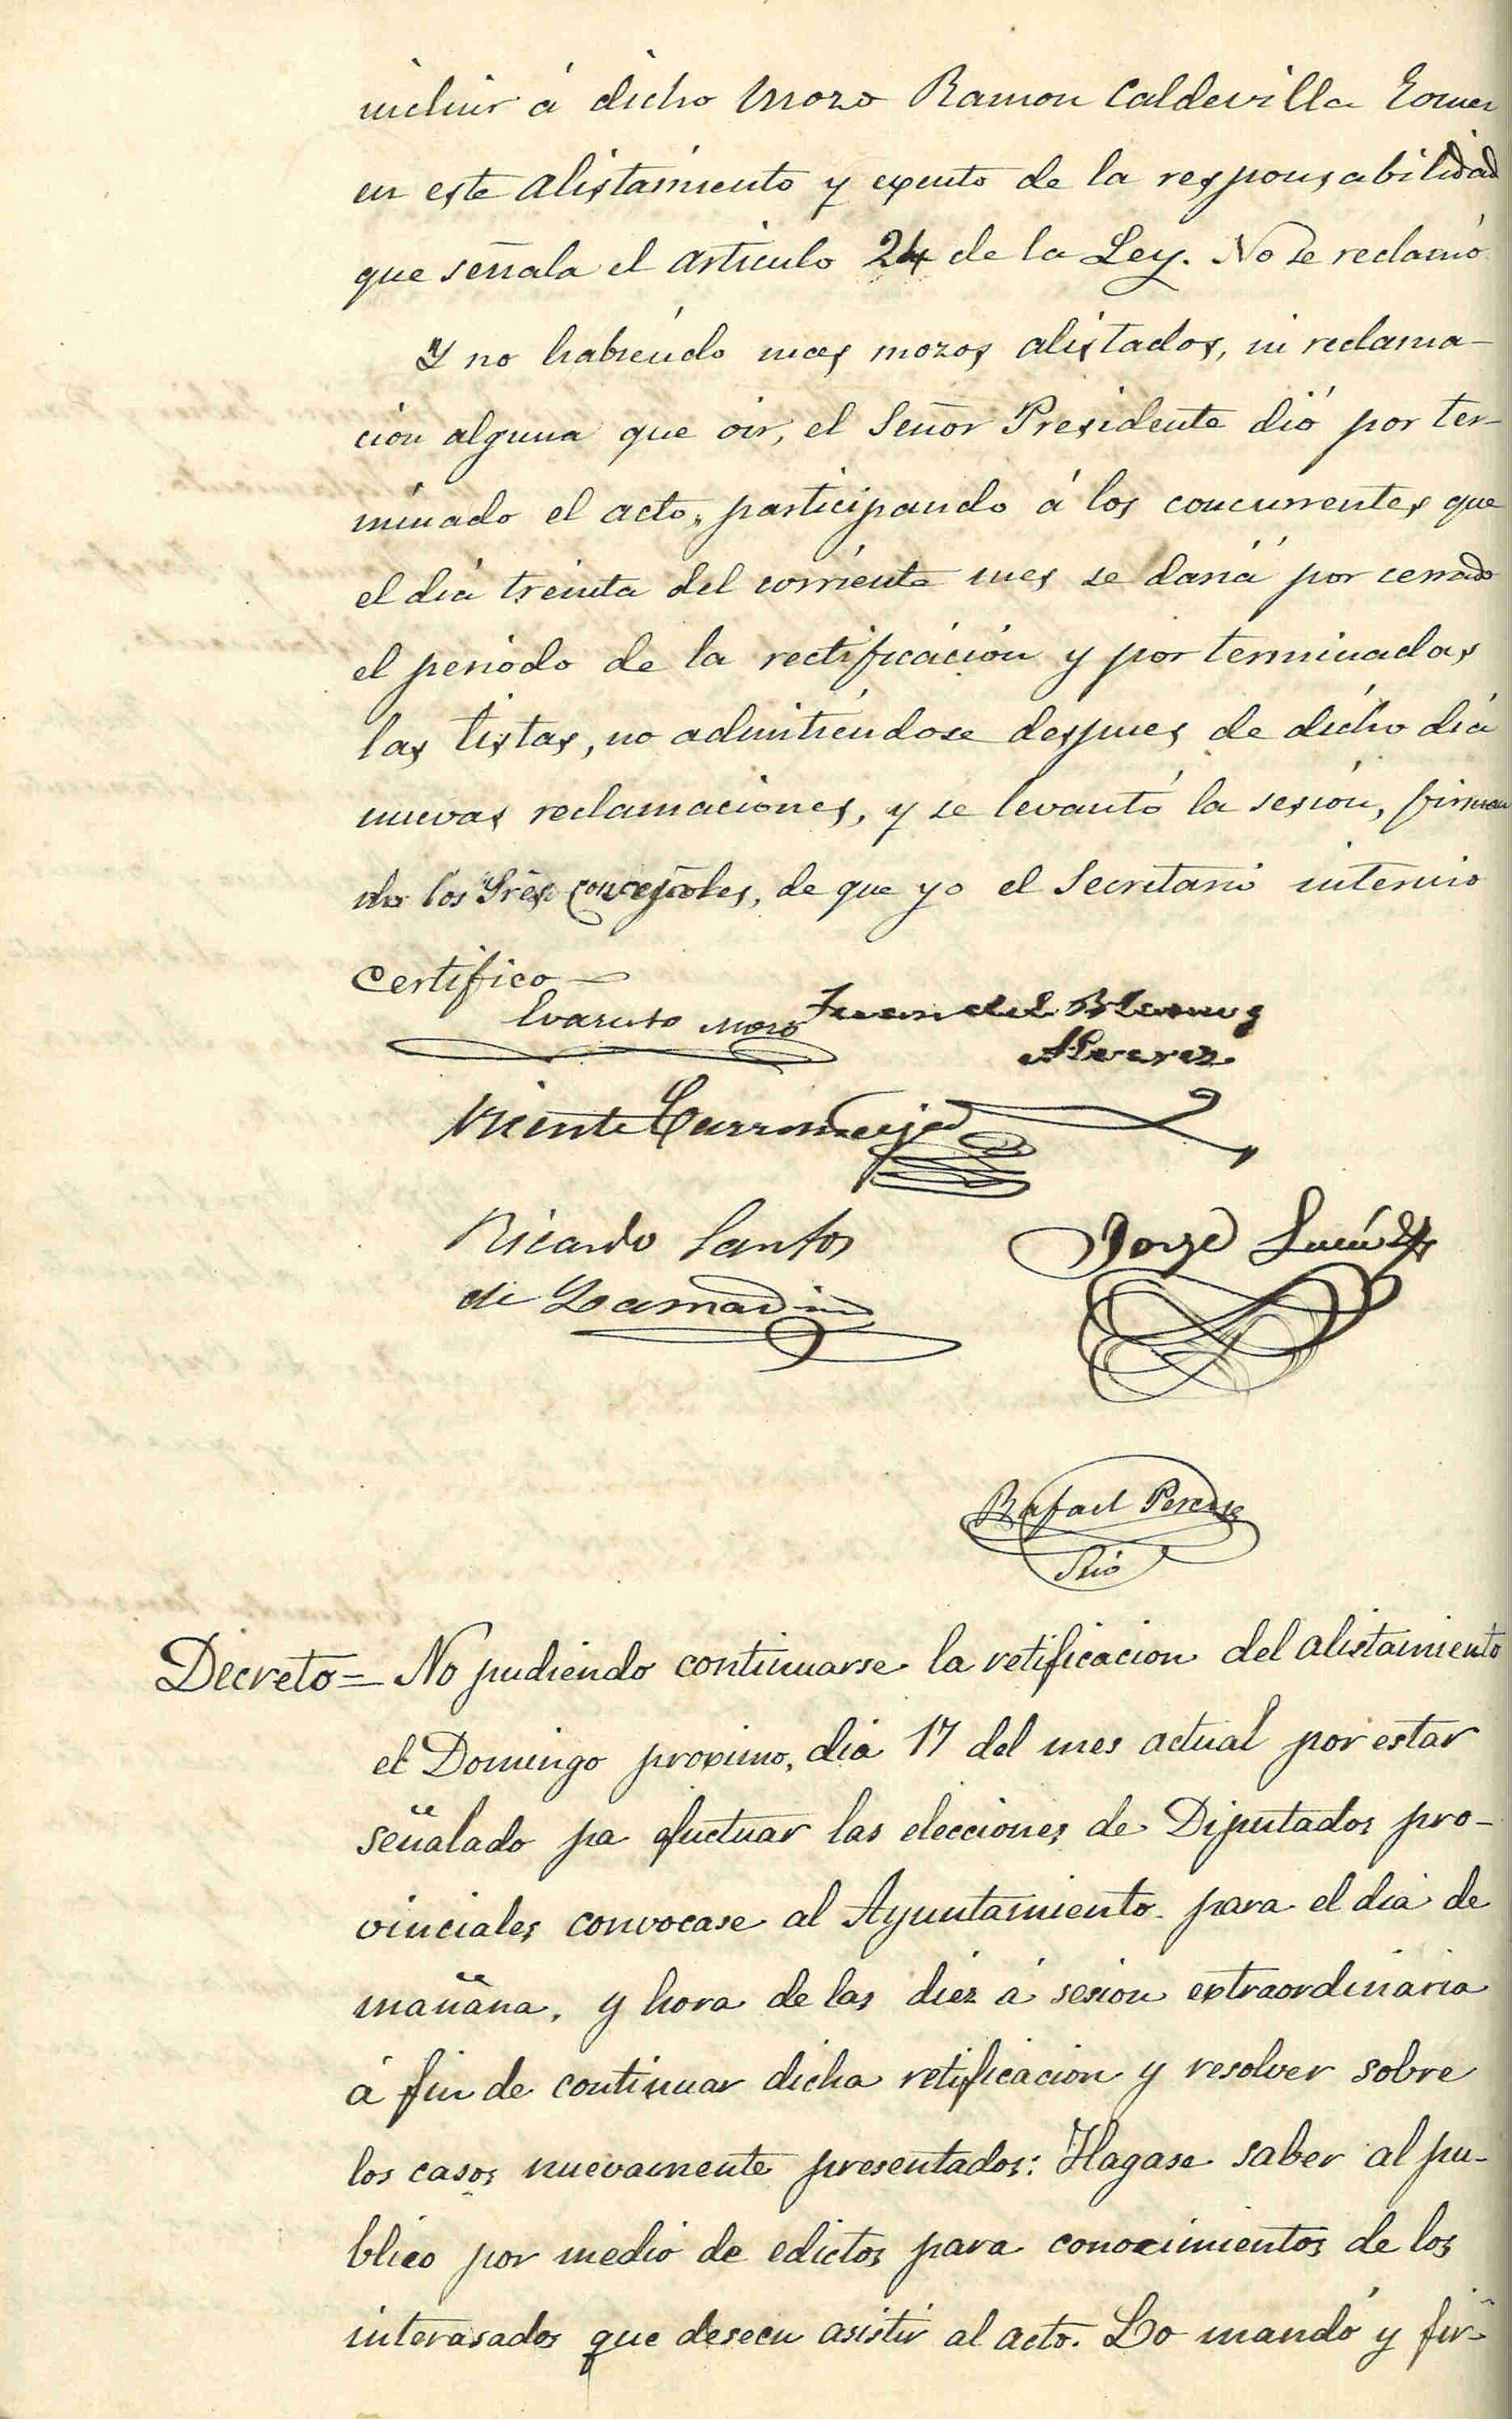 incluir á dicho mozo Ramon Caldevilla
en este alistamiento y exento de la responsabilidad
que señala el articulo 24 de la Ley. No se reclamó.
Y no habiendo mas mozos alistados, ni reclama-
cion alguna que oir, el Señor Presidente dió por ter-
minado el acto, participando á los concurrentes que
el dia treinta del corriente mes se daria por cerrado
el periodo de la rectificación y por terminadas
las listas, no admitiéndose despues de dicho dia
nuevas reclamaciones, y se levantó la sesión, firman
do los Sres. Concejales, de que yo el Secretario interino
certifico—
Evaristo Moro Juan del Blanco
Alvarez
Vicente
Ricardo Santos
de Lamadrid Jorge
Rafael
Srio
Decreto= No pudiendo continuarse la retificacion del alistamiento
el Domingo proximo, dia 17 del mes actual por estar
señalado pa efectuar las elecciones de Diputados pro-
vinciales convocase al Ayuntamiento para el dia de
mañana, y hora de las diez á sesion extraordinaria
á fin de continuar dicha retificacion y resolver sobre
los casos nuevamente presentados: Hagase saber al pu-
blico por medio de edictos para conocimientos de los
interasados que deseen asistir al acto. Lo mandó y fir-